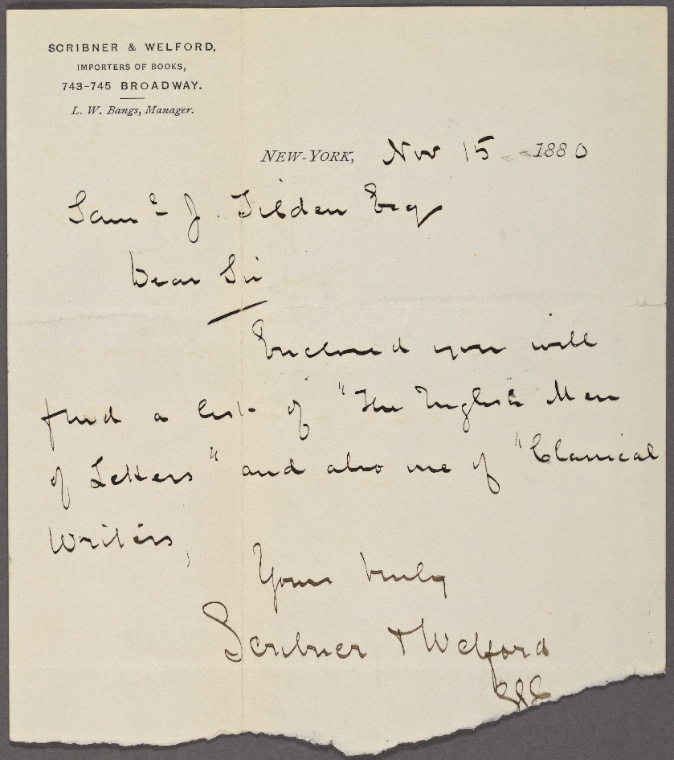 SCRIBNER & WELFORD,
IMPORTERS OF BOOKS,
743-745 BROADWAY.
L. W. Bangs, Manager.
NEW-YORK, Nov 15 1880
Saml J. Tilden Esq
Dear Sir
Enclosed you will
find a list of "The English Men
of Letters" and also one of "Classical
Writers,
Yours truly
Scribner & Welford